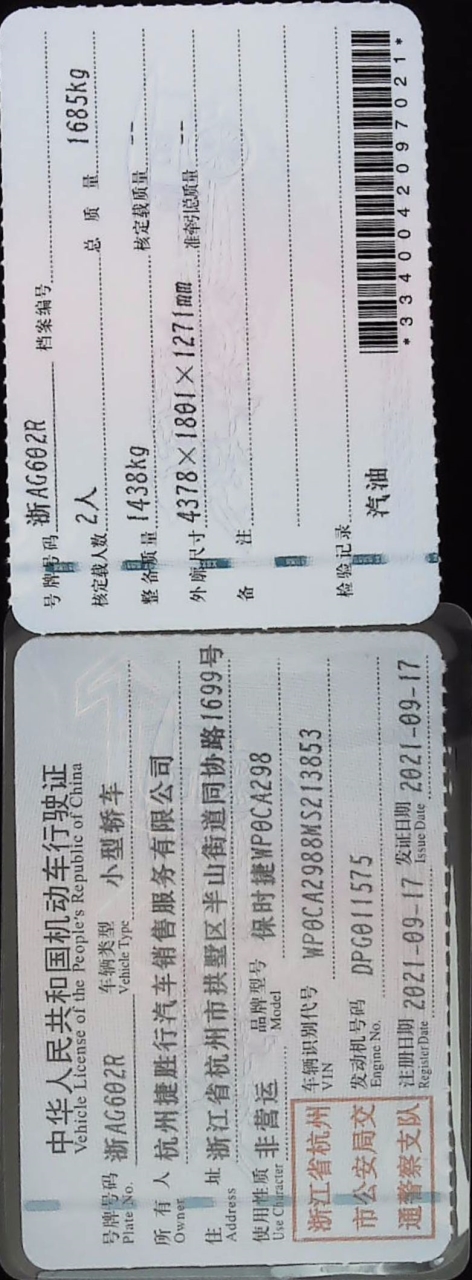 中华人民共和国机动车行驶证
Vehicle License of the People's Republic of China
号牌号码 浙AG602R 车辆类型 小型轿车
Plate No. Vehicle Type
所有人 杭州捷胜行汽车销售服务有限公司
Owner
住址 浙江省杭州市拱墅区半山街道同协路1699号
Address
使用性质 非营运 品牌型号 保时捷WP0CA298
Use Character Model
浙江省杭州
市公安局交
通警察支队
车辆识别代号 WP0CA2988MS213853
VIN
发动机号码 DPG011575
Engine No.
注册日期 2021-09-17 发证日期 2021-09-17
Register Date Issue Date
号牌号码 浙AG602R 档案编号
核定载人数 2人 总质量 1685kg
整备质量 1438kg 核定载质量 --
外廓尺寸 4378×1801×1271mm 准牵引总质量 --
备注
检验记录
汽油
*3340042097021*